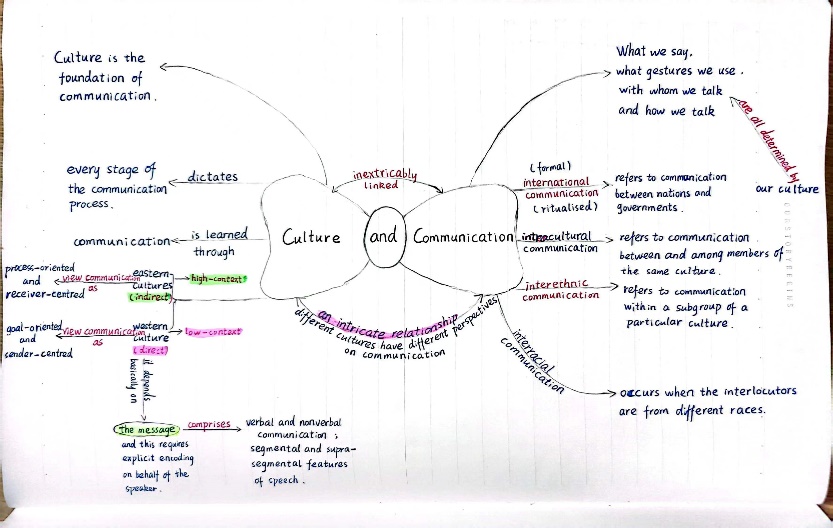 Culture is the
foundation of
communication.
What we say,
what gestures we use.
with whom we talk
and how we talk
are all determined by
our culture
every stage of
the communication
process.
dictates
inextricably
linked
(formal)
international
communication
(ritualised)
refers to communication
between nations and
governments.
communication
is learned
through
Culture
and
Communication
intracultural
communication
refers to communication
between and among members of
the same culture.
process-oriented
and
receiver-centred
view communication
as
eastern
cultures
(indirect)
high-context
interethnic
communication
refers to communication
within a subgroup of a
particular culture.
goal-oriented
and
sender-centred
view communication
as
western
culture
(direct)
low-context
an intricate relationship
different cultures have different perspectives
on communication
interracial
communication
occurs when the interlocutors
are from different races.
it depends
basically on
The message
and this requires
explicit encoding
on behalf of the
speaker.
comprises
verbal and nonverbal
communication;
segmental and supra-
segmental features
of speech.